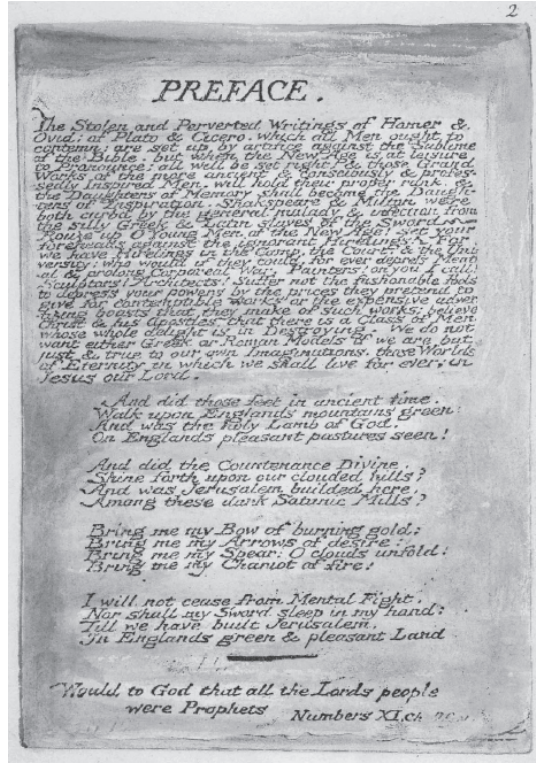 2
PREFACE.
The Stolen and Perverted Writings of Homer &
Ovid: of Plato & Cicero. which all Men ought to
contemn: are set up by artifice against the Sublime
of the Bible. but when the New Age is at leisure
to Pronounce; all will be set right: & those Grand
Works of the more ancient & consciously & profes-
sedly Inspired Men, will hold their proper rank, &
the Daughters of Memory shall become the Daugh-
ters of Inspiration. Shakspeare & Milton were
both curbd by the general malady & infection from
the silly Greek & Latin slaves of the Sword.
Rouze up O Young Men of the New Age! set your
foreheads against the ignorant Hirelings! For
we have Hirelings in the Camp, the Court & the Uni
versity: who would if they could, for ever depress Ment
al & prolong Corporeal War. Painters! on you I call!
Sculptors! Architects! Suffer not the fashonable Fools
to depress your powers by the prices they pretend to
give for contemptible works or the expensive adver
tizing boasts that they make of such works; believe
Christ & his Apostles that there is a Class of Men
whose whole delight is in Destroying. We do not
want either Greek or Roman Models if we are but
just & true to our own Imaginations, those Worlds
of Eternity in which we shall live for ever; in
Jesus our Lord.
And did those feet in ancient time.
Walk upon Englands mountains green:
And was the holy Lamb of God.
On Englands pleasant pastures seen!
And did the Countenance Divine,
Shine forth upon our clouded hills?
And was Jerusalem builded here,
Among these dark Satanic Mills?
Bring me my Bow of burning gold:
Bring me my Arrows of desire:
Bring me my Spear: O clouds unfold!
Bring me my Chariot of fire!
I will not cease from Mental Fight,
Nor shall my Sword sleep in my hand:
Till we have built Jerusalem,
In Englands green & pleasant Land
Would to God that all the Lords people
were Prophets
Numbers XI.ch